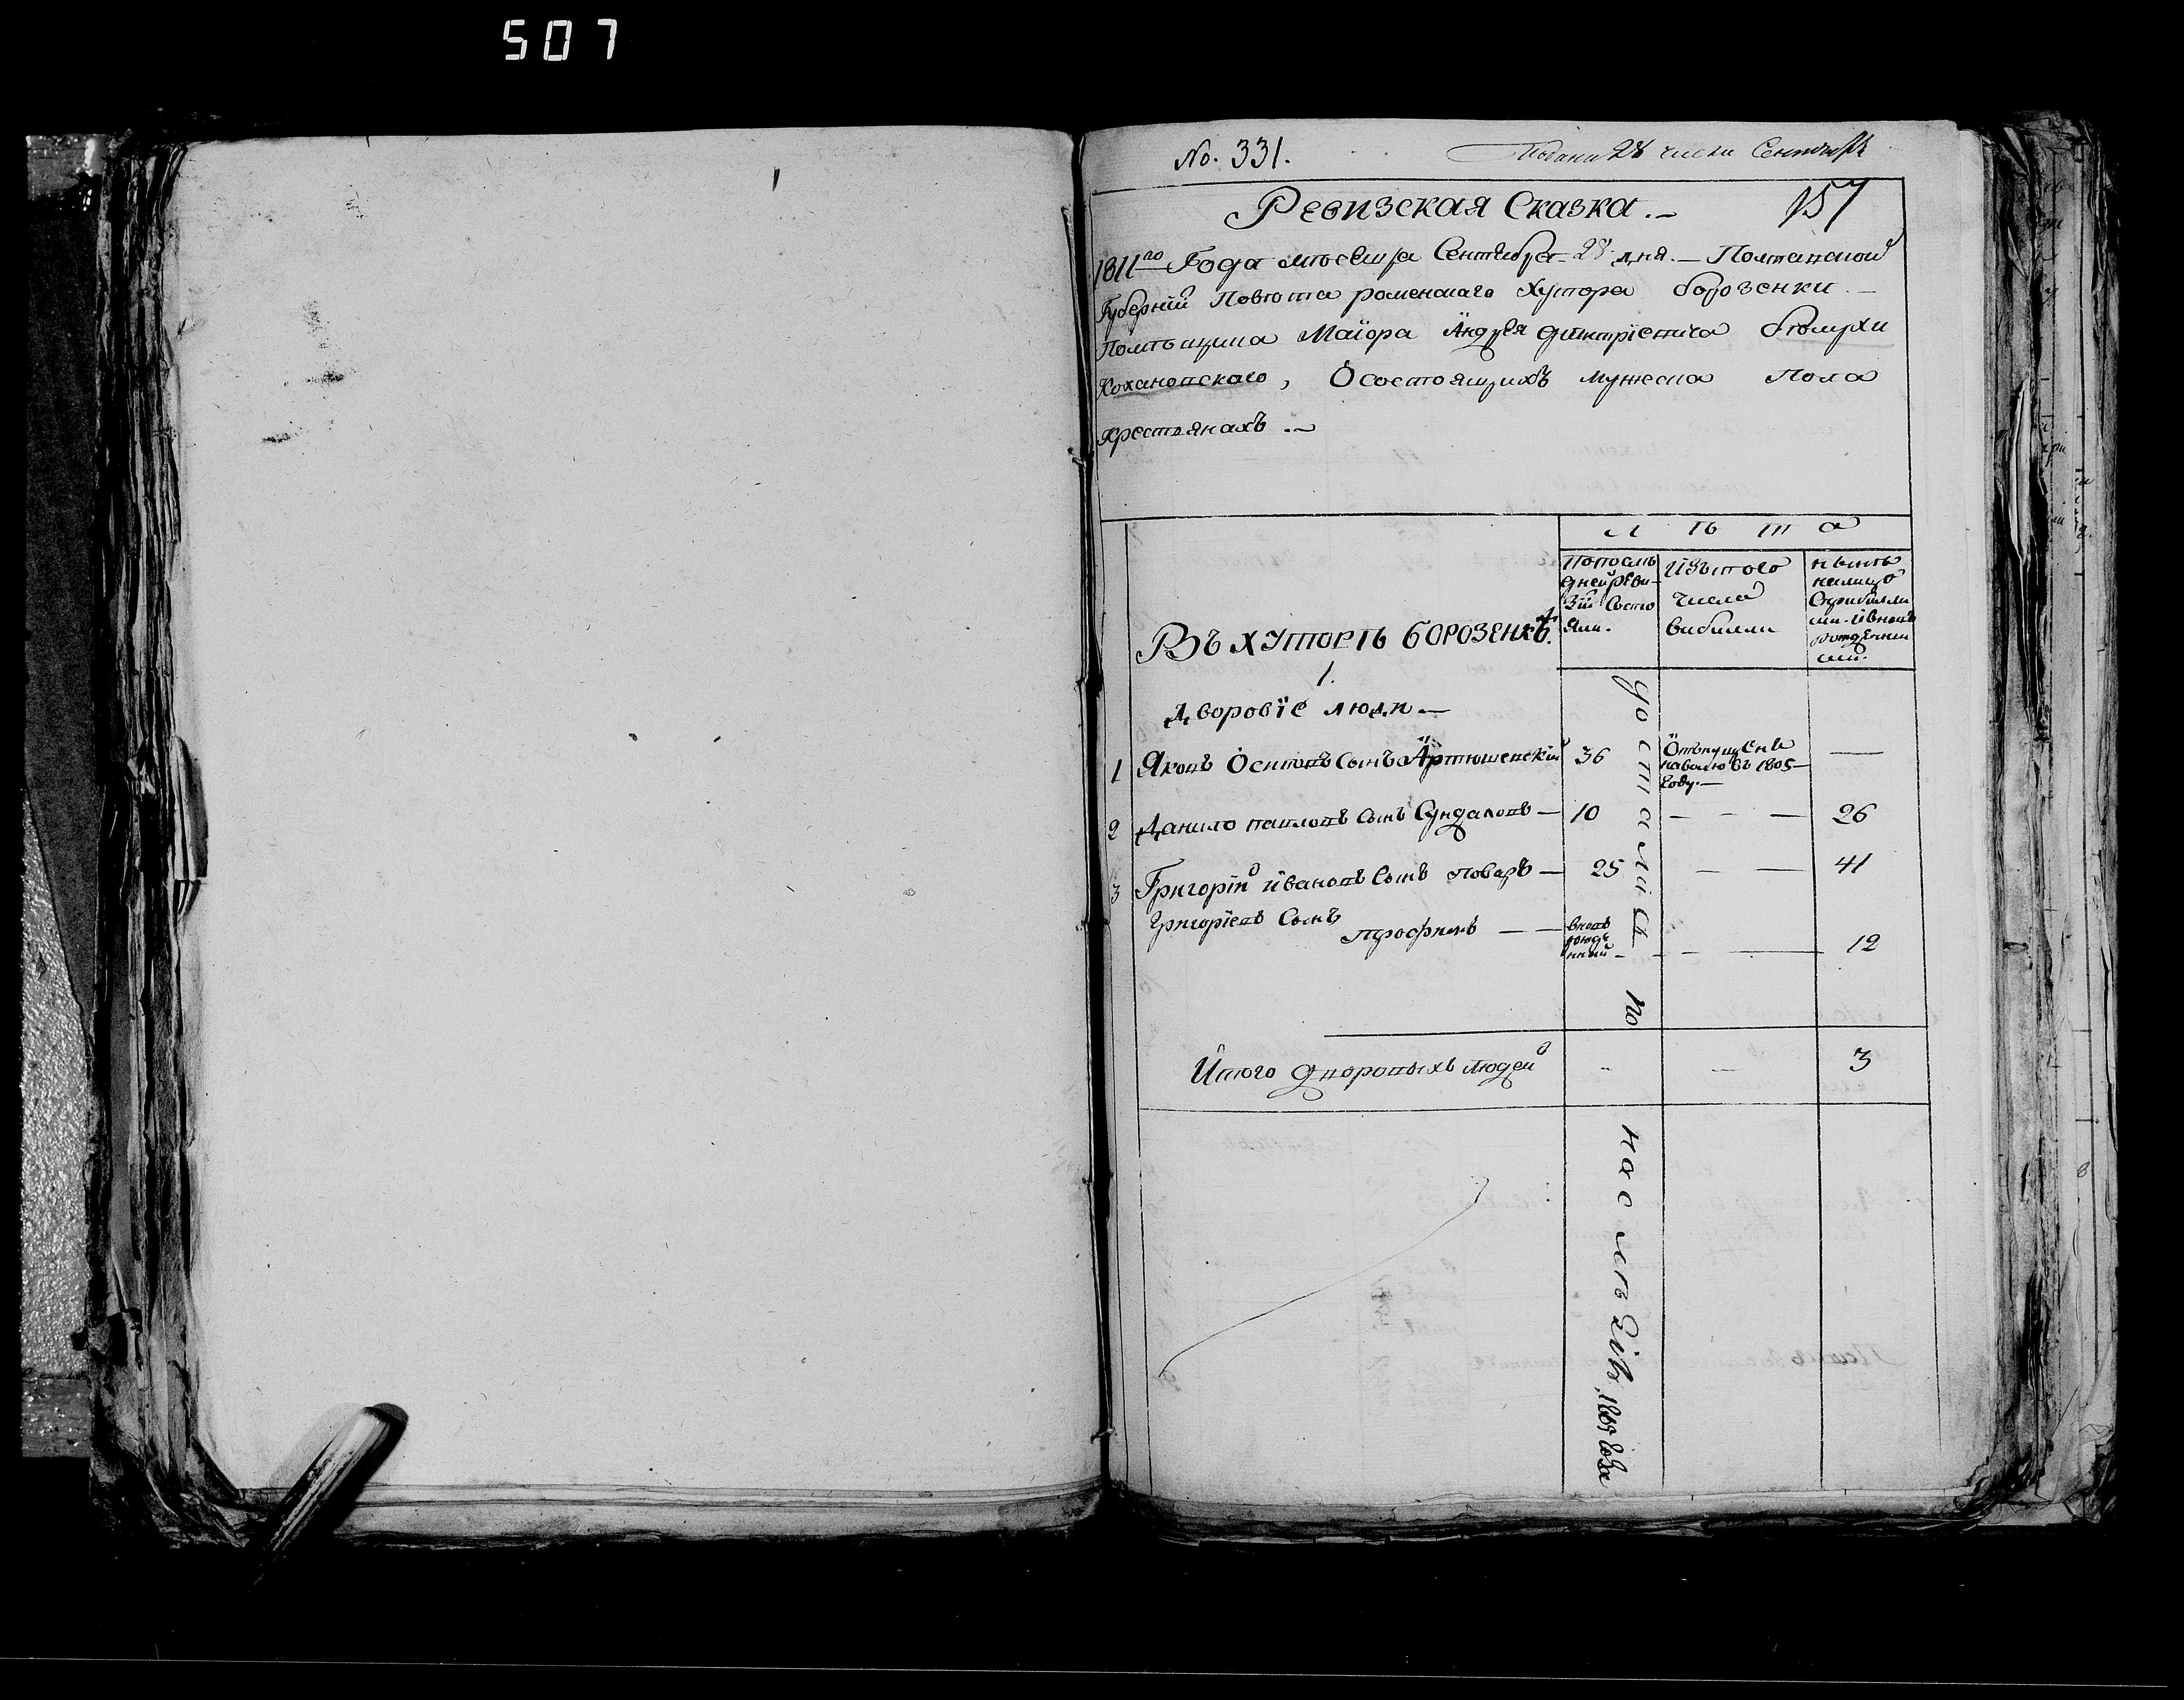 507
No. 331.
Подана 28 числа Сентября
Ревизская Сказка.
157
1811го Года мѣсяца Сентября 28 дня. Полтавской
Губерніи Повѣта роменскаго Хутора борозенки
Помѣщика Маіора Андрея Димитріевича
Кохановскаго, О состоящихъ мужеска Пола
крестьянахъ
Л ѣ т а
По послѣ
дней реви-
зіи Состо
яли.
Изъ того
числа
вибилли
нынѣ
налицо
Въ Хуторѣ Борозенкѣ.
1.
Дворовіе люди
1 Яковъ Осиповъ Сынъ Артюшевскій 36 Отпущенъ на волю въ 1805 году. —
2 Данило павловъ Сынъ Сундаковъ — 10 — — — 26
3 Григорій ивановъ Сынъ поваръ — 25 — — 41
Григоріевъ Сынъ Трофимъ — — вновь рожденный — — 12
Итого дворовыхъ людей — 3
достались по наслѣдію 1805 года